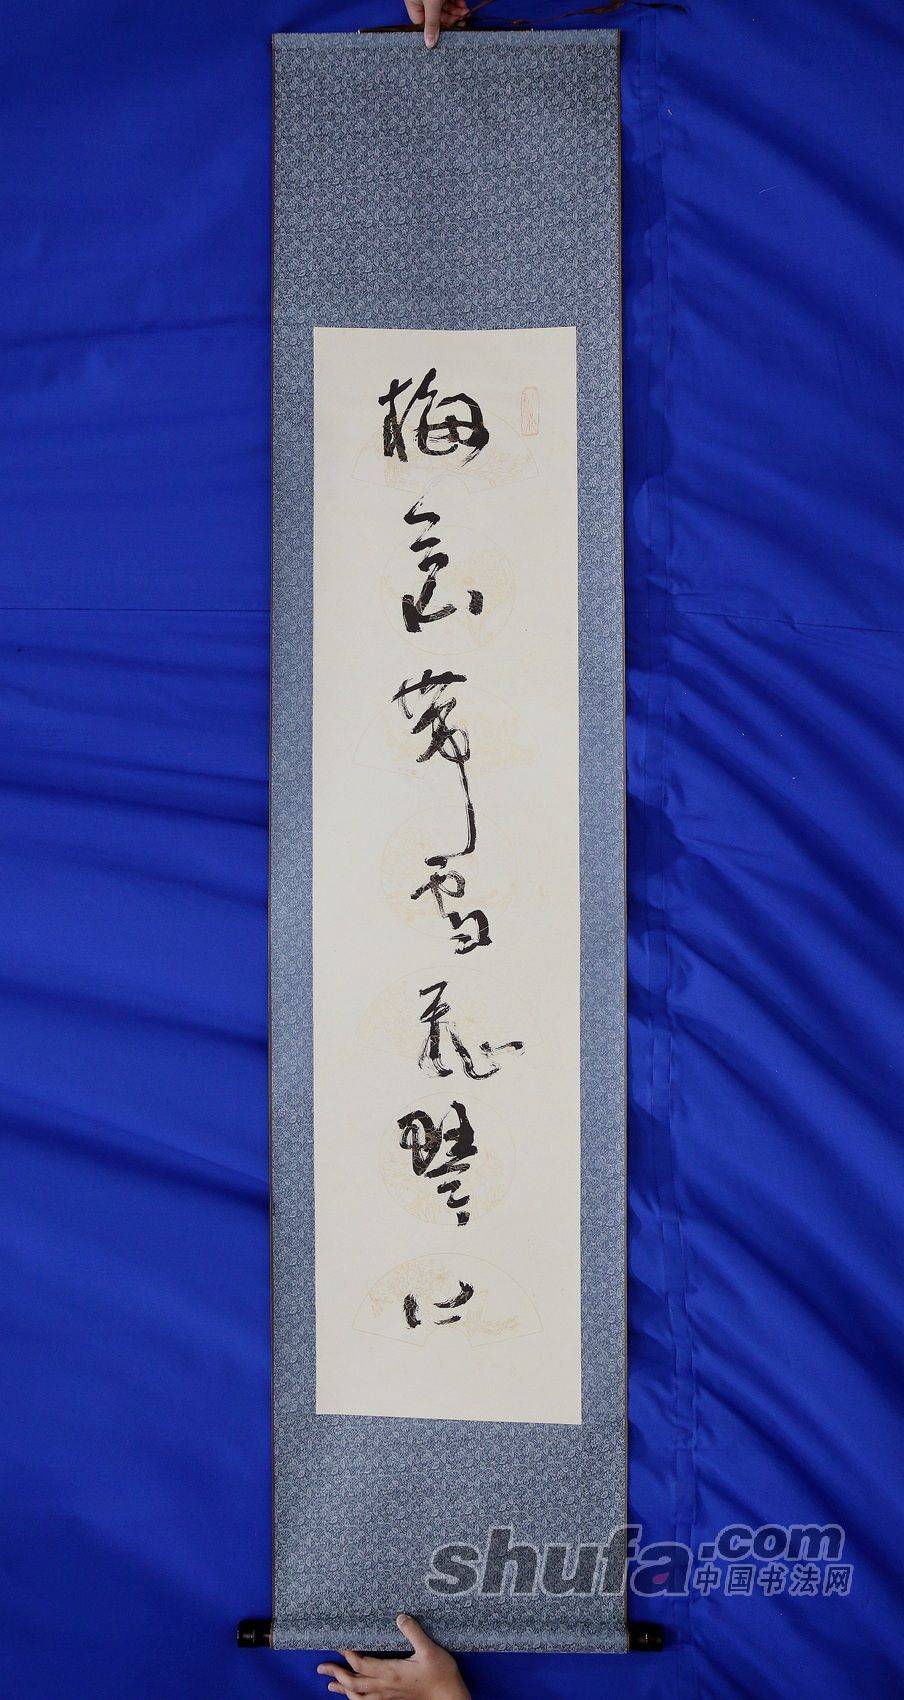 梅花帶雪飛琴上
shufa.com
中国书法网